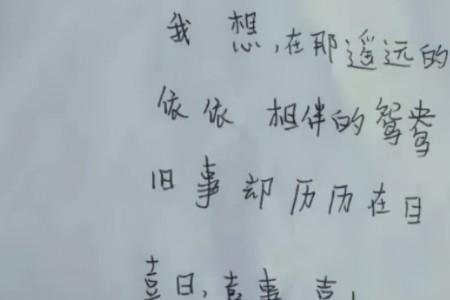 我想,在那遥远的
依依相伴的鸳鸯
旧事却历历在目
喜日,喜事,喜